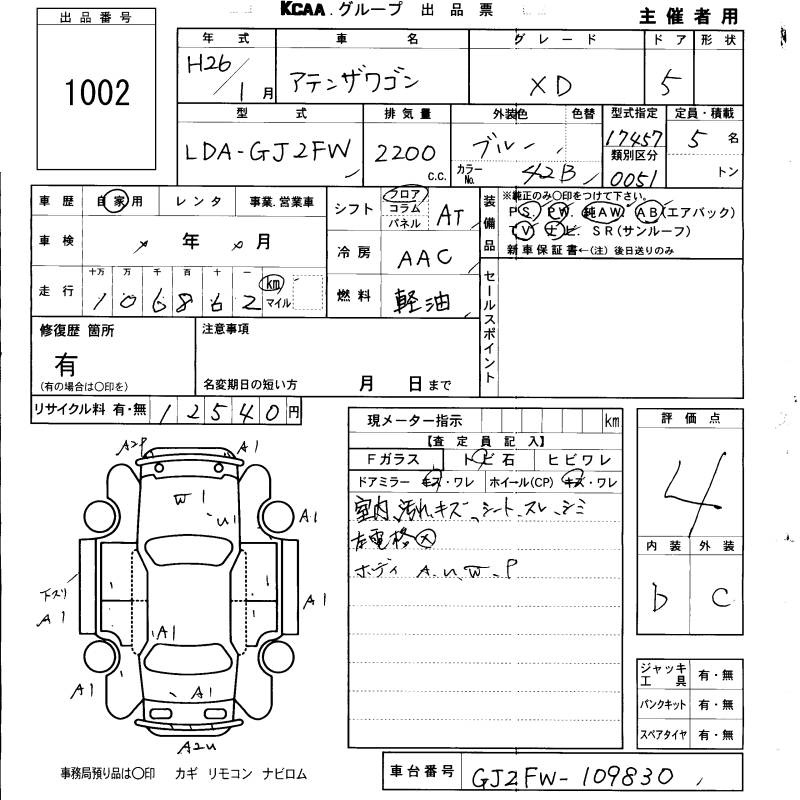 KCAA.グループ 出品票
主催者用
出品番号
1002
年式 車名 グレード ドア 形状
H26/1月 アテンザワゴン XD 5
型式 排気量 外装色 色替 型式指定 定員・積載
LDA-GJ2FW 2200 c.c. ブルー 17457 5名
カラーNo. 42B 類別区分 0051 トン
車歴 自家用 レンタ 事業.営業車
シフト フロア コラム パネル AT
装備品 ※純正のみ○印をつけて下さい。
PS. PW. 純AW. AB(エアバック)
TV ナビ SR(サンルーフ)
新車保証書←(注) 後日送りのみ
車検 年 月
冷房 AAC
走行 十万 万 千 百 十 一
106862 km マイル
燃料 軽油
セールスポイント
修復歴 箇所
有
(有の場合は○印を)
注意事項
名変期日の短い方 月 日まで
リサイクル料 有・無 12540円
現メーター指示 km
【査定員記入】
Fガラス トビ石 ヒビワレ
ドアミラー キズ・ワレ ホイール(CP) キズ・ワレ
室内、汚れ、キズ、シート、スレ、シミ
左電格
ボディ A.U.W.P
評価点
4
内装 外装
D C
A2P A1
W1
U1
A1
下スリ
A1 A1
A1
A1 A1 A1
A2U
ジャッキ工具 有・無
パンクキット 有・無
スペアタイヤ 有・無
事務局預り品は○印 カギ リモコン ナビロム
車台番号 GJ2FW-109830